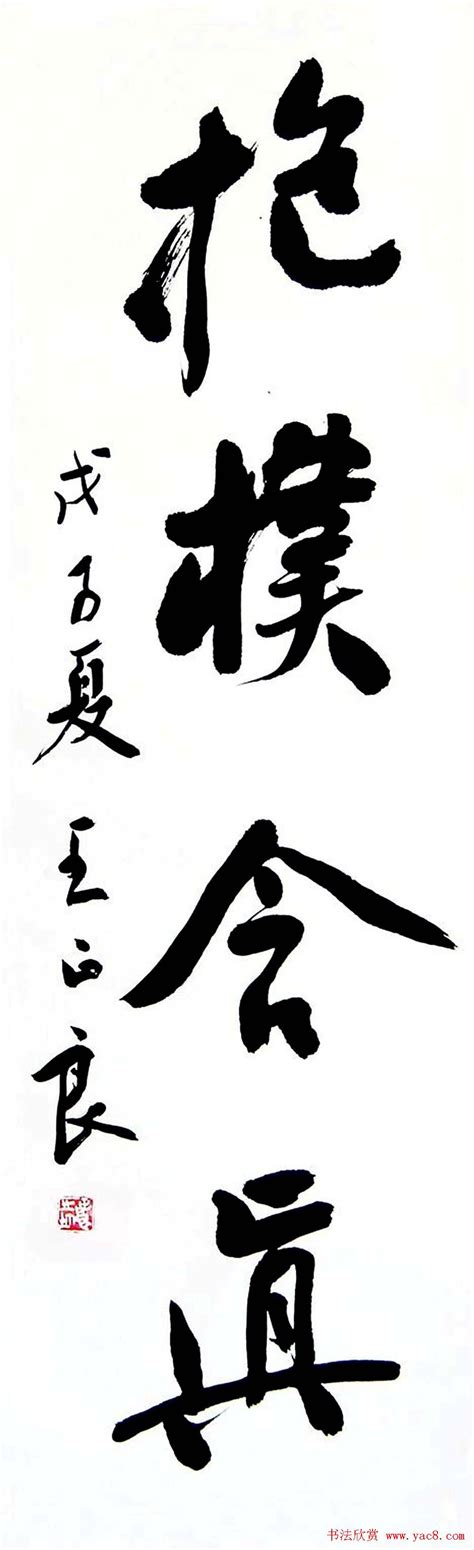 抱樸含真
戊子夏 王正良
书法欣赏 www.yac8.com